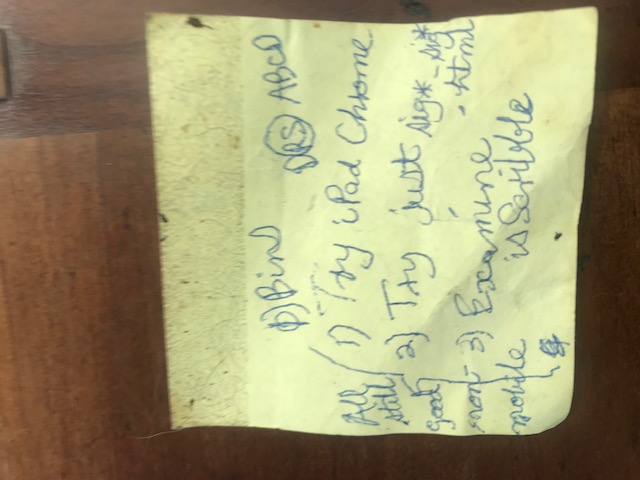 0) Bind DRS ABCD
1) Try iPad Chrome
2) Try just sig* - sig*
.html
3) Examine
isScribble
All
still
good
non-
mobile